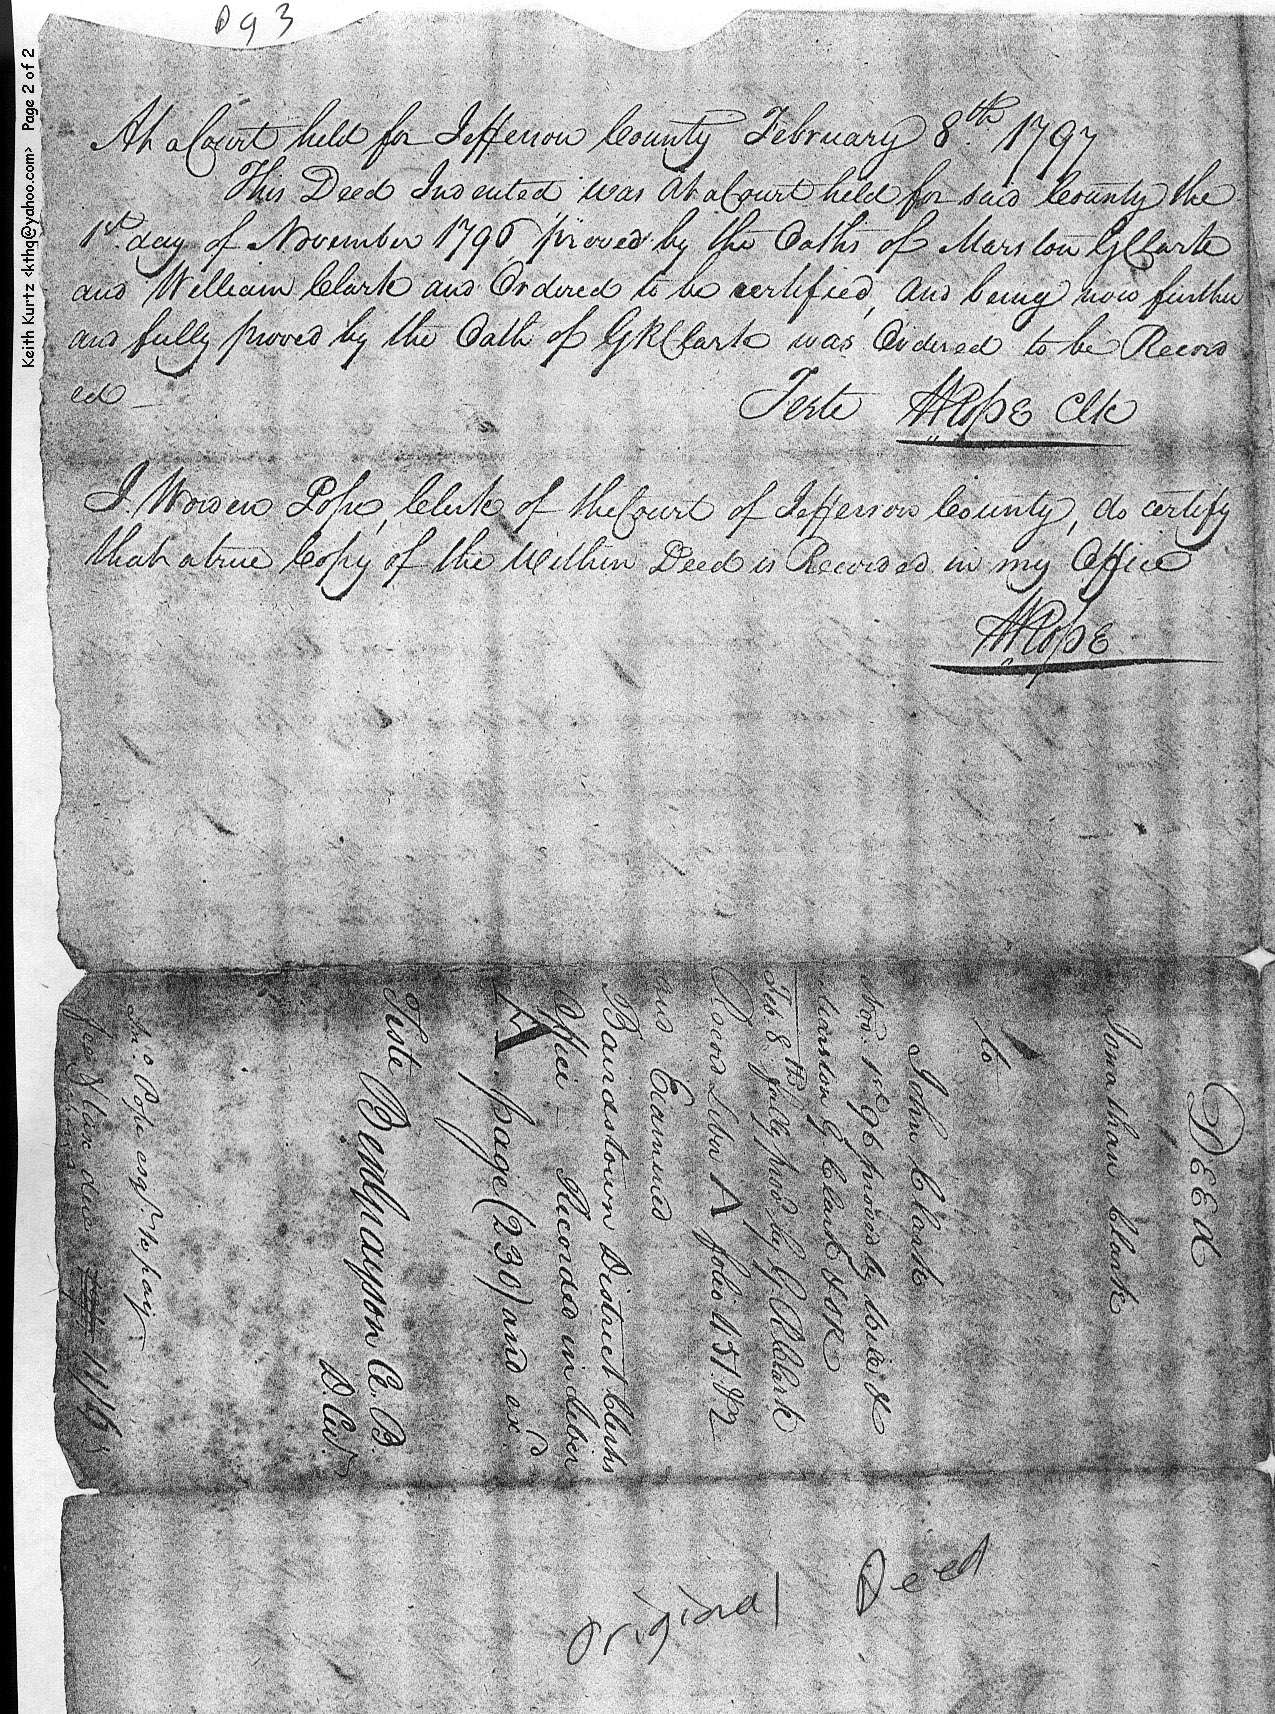 pg 3
Keith Kurtz <krhq@yahoo.com> Page 2 of 2
At a Court held for Jefferson County February 8th. 1797
This Deed Indented was At a Court held for said County the
1st. day of November 1796 proved by the Oaths of Marston G Clark
and William Clark and Ordered to be certified, And being now further
and fully proved by the Oath of G R Clark was Ordered to be Record
ed
Teste W Pope Clk
I Worden Pope, Clerk of the Court of Jefferson County, do certify
that a true Copy of the Within Deed is Recorded in my Office
W Pope
DEEd
Jonathan Clark
to
John Clark
Nov. 1st 96 proved by &
Marston G Clark & OR
Feb 8th fully provd by G R Clark
Record Liber A folio 451.
and Examined
Bairdstown District Clerks
Office Recorded in Liber
A page (230) and exd
Teste Ben Grayson C. B.
D. Ct.
Jno. Pope esqr. to pay
11/
Original Deed